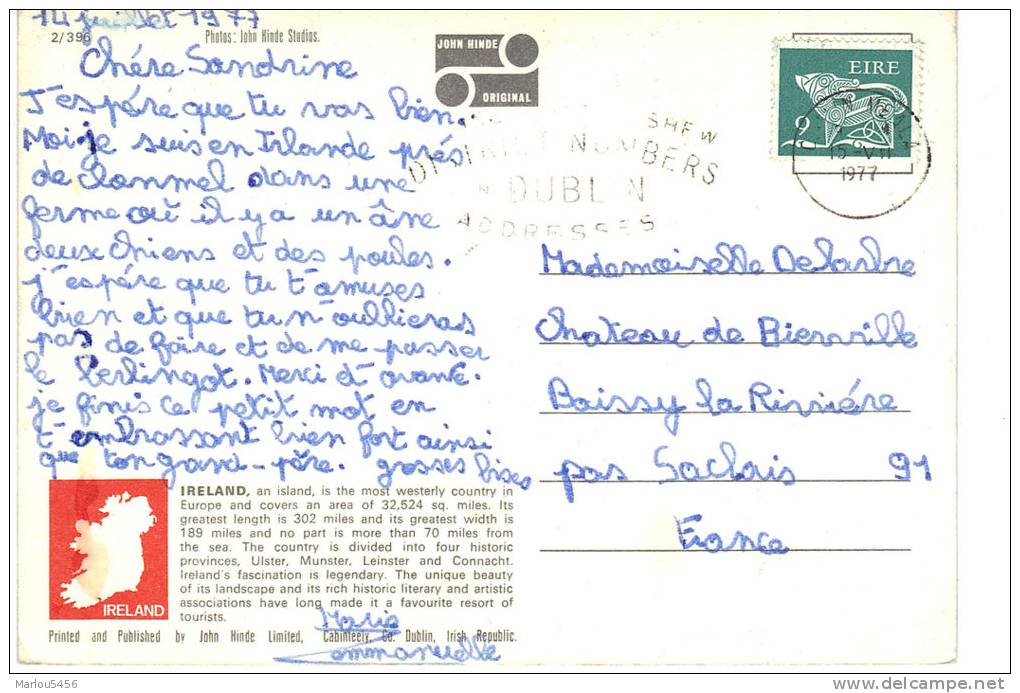 14 juillet 1977
2/396
Photos: John Hinde Studios.
JOHN HINDE
ORIGINAL
EIRE
9
Chére Sandrine
J'espére que tu vas bien.
Moi je suis en Irlande prés
de clonmel dans une
ferme où il y a un âne
deux chiens et des poules.
j'espére que tu t'amuses
bien et que tu n'oublieras
pas de faire et de me passer
le berlingot. Merci d'avance.
je finis ce petit mot en
t'embrassant bien fort ainsi
que ton gand-pére. gosses bises
SHEW
DISTRICT NUMBERS
IN DUBLIN
ADDRESSES
15 VII
1977
Mademoiselle Delarbre
Chateau de Bierville
Boissy la Riviére
par Saclais 91
France
IRELAND, an island, is the most westerly country in
Europe and covers an area of 32,524 sq. miles. Its
greatest length is 302 miles and its greatest width is
189 miles and no part is more than 70 miles from
the sea. The country is divided into four historic
provinces, Ulster, Munster, Leinster and Connacht.
Ireland's fascination is legendary. The unique beauty
of its landscape and its rich historic literary and artistic
associations have long made it a favourite resort of
tourists.
IRELAND
Marie
Emmanuelle
Printed and Published by John Hinde Limited, Cabinteely, Co. Dublin, Irish Republic.
Marlou5456
http://www.delcampe.net